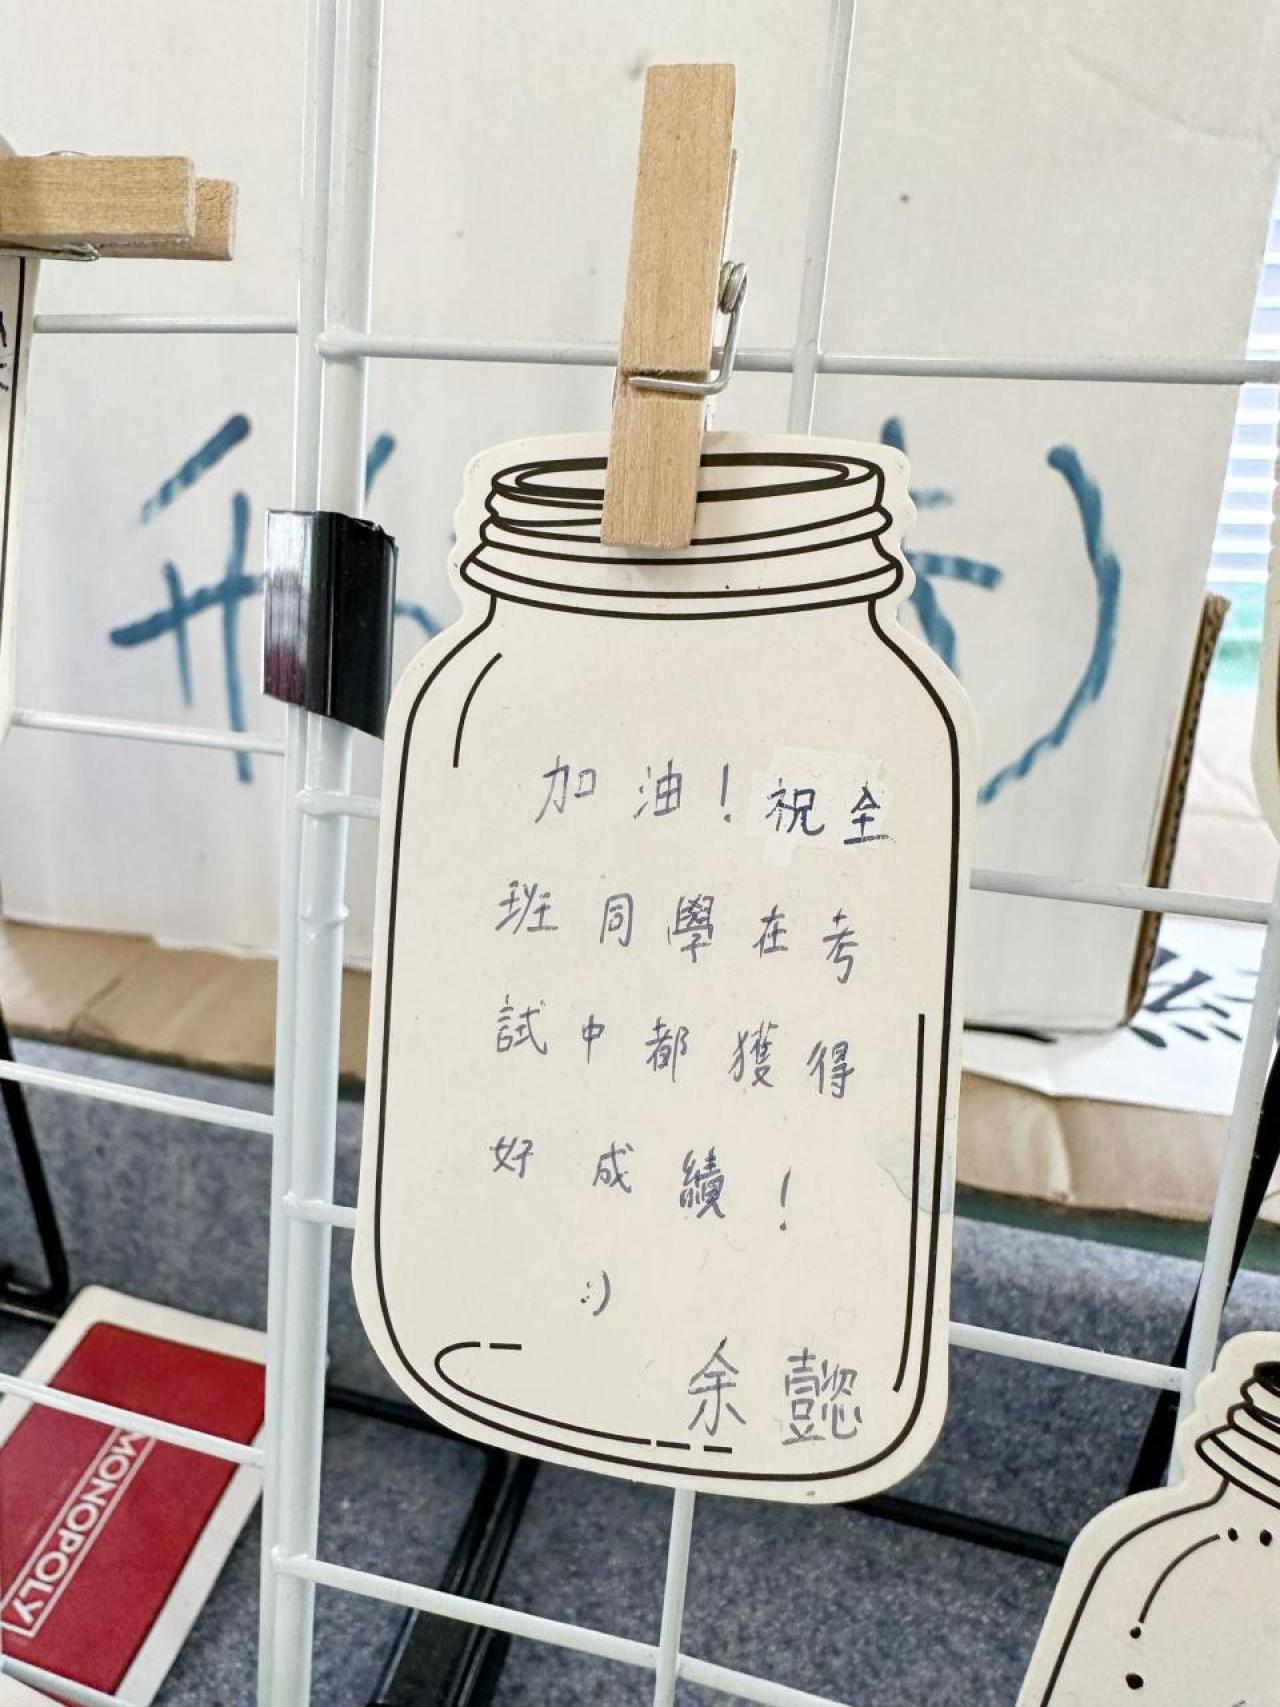 加油！祝全
班同學在考
試中都獲得
好成績！
:)
余懿
MONOPOLY